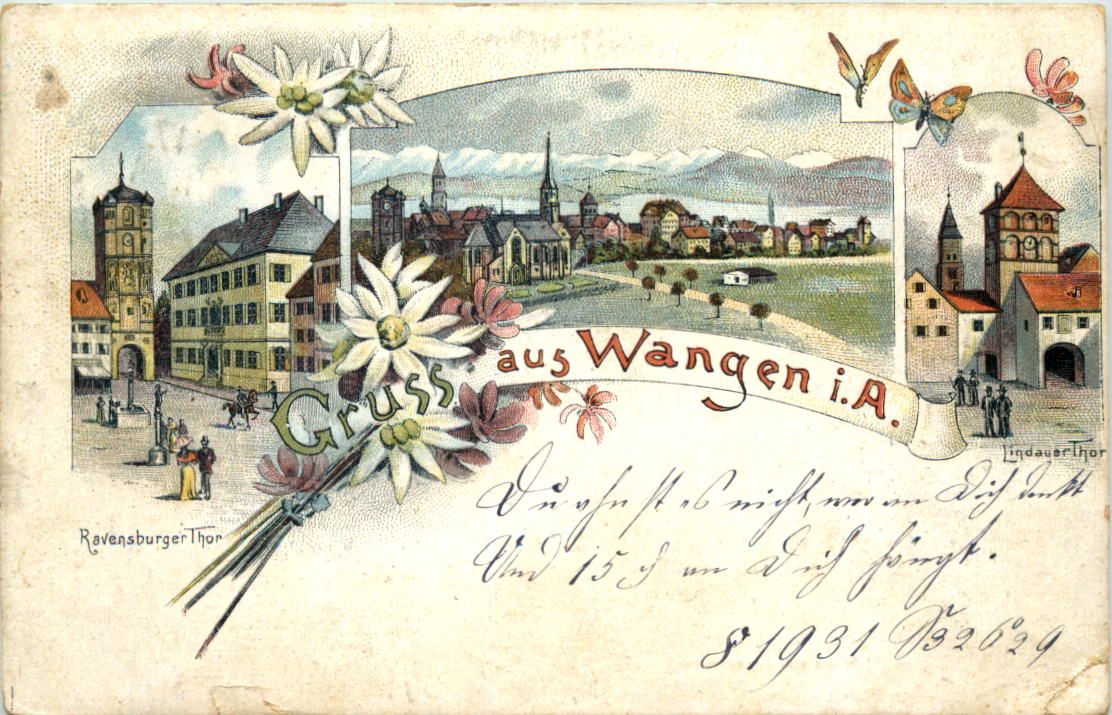 Gruss aus Wangen i.A.
Ravensburger Thor
Lindauer Thor
Du ahnst es nicht, wer an Dich denkt
Und 15 ₰ an Dich hängt.
§ 1931